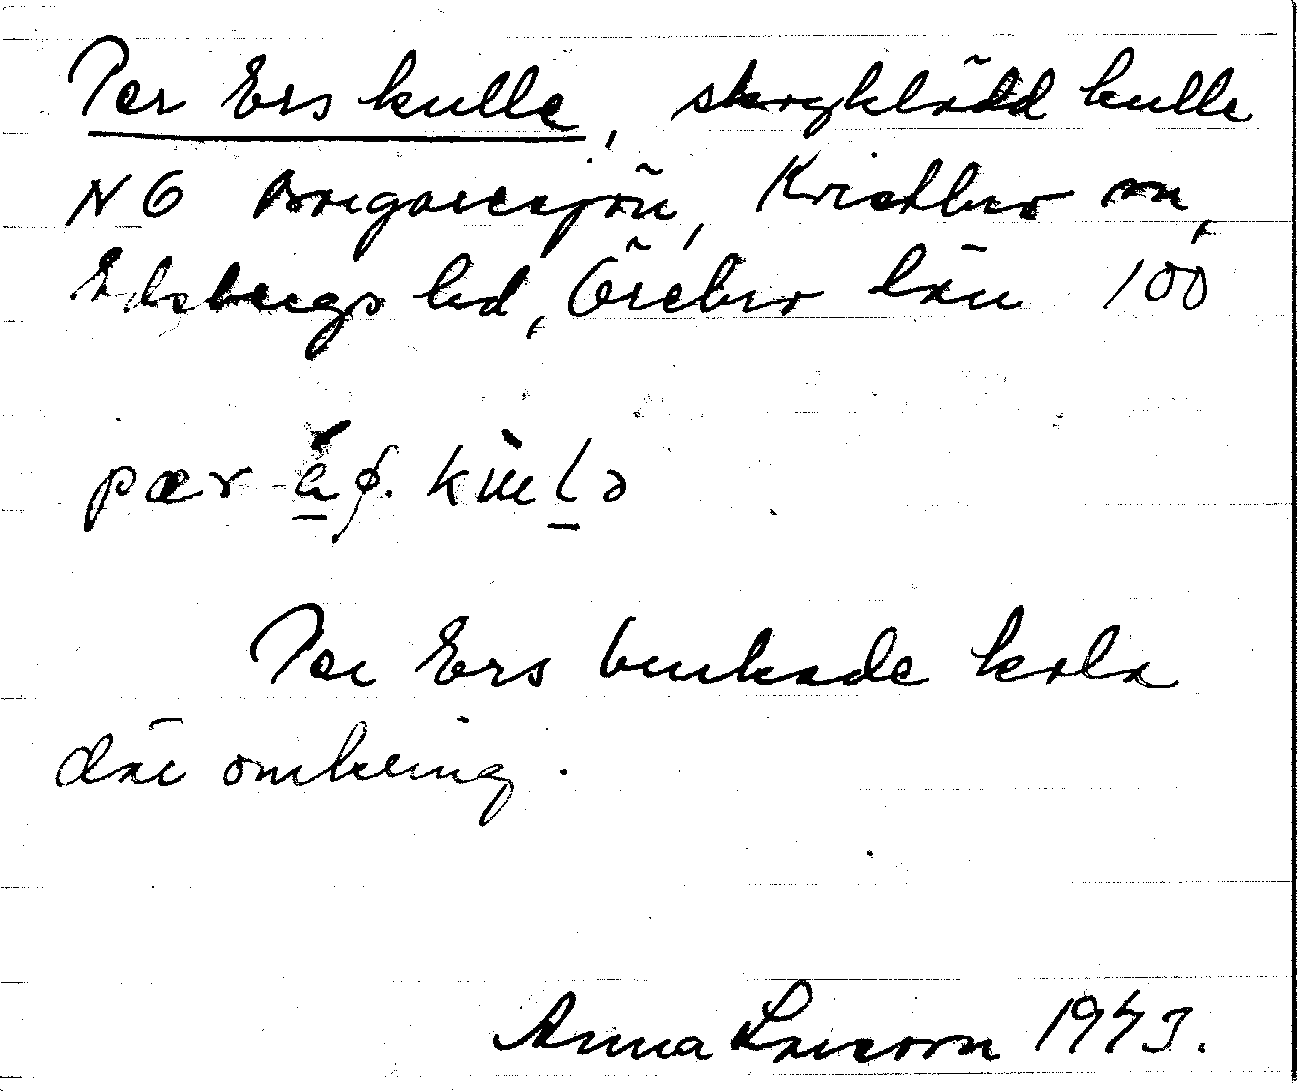 Per Ers kulle, skogklädd kulle
NO Borgaresjön, Kvistbro sn,
Edsbergs hd, Örebro län 100
Per Ers brukade kola
där omkring.
Anna Larsson 1943.